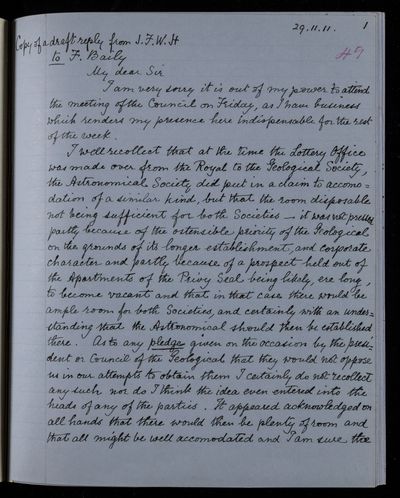 29.11.11. 1
Copy of a draft reply from J.F.W.H
to F. Baily
49
My dear Sir
I am very sorry it is out of my power to attend
the meeting of the Council on Friday, as I have business
which renders my presence here indispensable for the rest
of the week.
I well recollect that at the time the Lottery Office
was made over from the Royal to the Geological Society,
the Astronomical Society did put in a claim to accomo=
dation of a similar kind, but that the room disposable
not being sufficient for both Societies — it was not pressed
partly because of the ostensible priority of the Geological
on the grounds of its longer establishment, and corporate
character and partly because of a prospect held out of
the Apartments of the Privy Seal being likely, ere long,
to become vacant and that in that case there would be
ample room for both Societies, and certainly with an under=
standing that the Astronomical should then be established
there. As to any pledge given on the occasion by the presi-
dent or Council of the Geological that they would not oppose
us in our attempts to obtain them I certainly do not recollect
any such nor do I think the idea even entered into the
heads of any of the parties. It appeared acknowledged on
all hands that there would then be plenty of room and
that all might be well accomodated and I am sure the